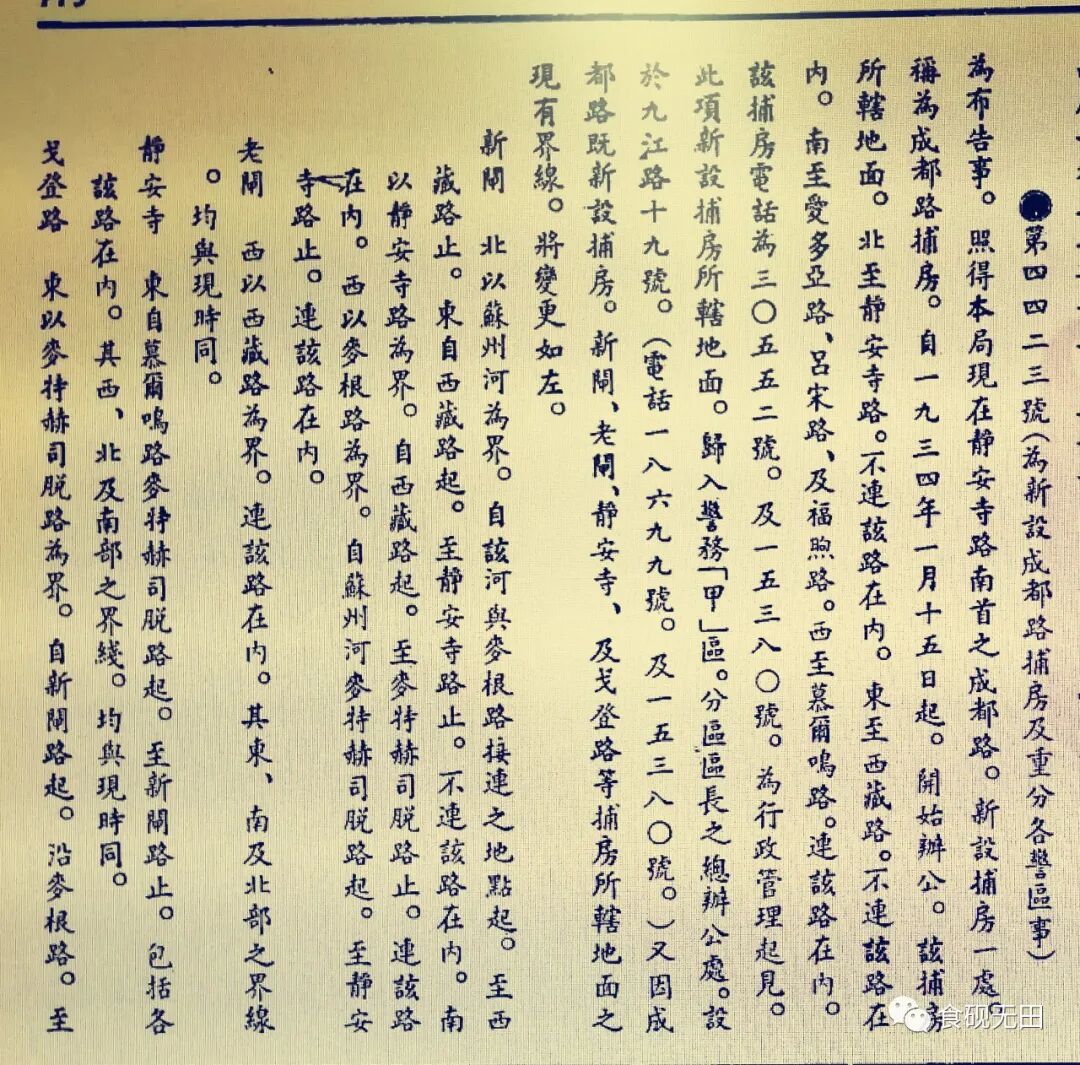 ●第四四二三號(為新設成都路捕房及重分各警區事)
為布告事。照得本局現在靜安寺路南首之成都路。新設捕房一處。
稱為成都路捕房。自一九三四年一月十五日起。開始辦公。該捕房
所轄地面。北至靜安寺路。不連該路在內。東至西藏路。不連該路在
內。南至愛多亞路、呂宋路、及福煦路。西至慕爾鳴路。連該路在內。
該捕房電話為三〇五五二號。及一五三八〇號。為行政管理起見。
此項新設捕房所轄地面。歸入警務「甲」區。分區區長之總辦公處。設
於九江路十九號。(電話一八六九九號。及一五三八〇號。)又因成
都路既新設捕房。新閘、老閘、靜安寺、及戈登路等捕房所轄地面之
現有界線。將變更如左。
新閘 北以蘇州河為界。自該河與麥根路接連之地點起。至西
藏路止。東自西藏路起。至靜安寺路止。不連該路在內。南
以靜安寺路為界。自西藏路起。至麥特赫司脱路止。連該路
在內。西以麥根路為界。自蘇州河麥特赫司脱路起。至靜安
寺路止。連該路在內。
老閘 西以西藏路為界。連該路在內。其東、南及北部之界線
。均與現時同。
靜安寺 東自慕爾鳴路麥特赫司脱路起。至新閘路止。包括各
該路在內。其西、北及南部之界綫。均與現時同。
戈登路 東以麥特赫司脱路為界。自新閘路起。沿麥根路。至
食砚无田